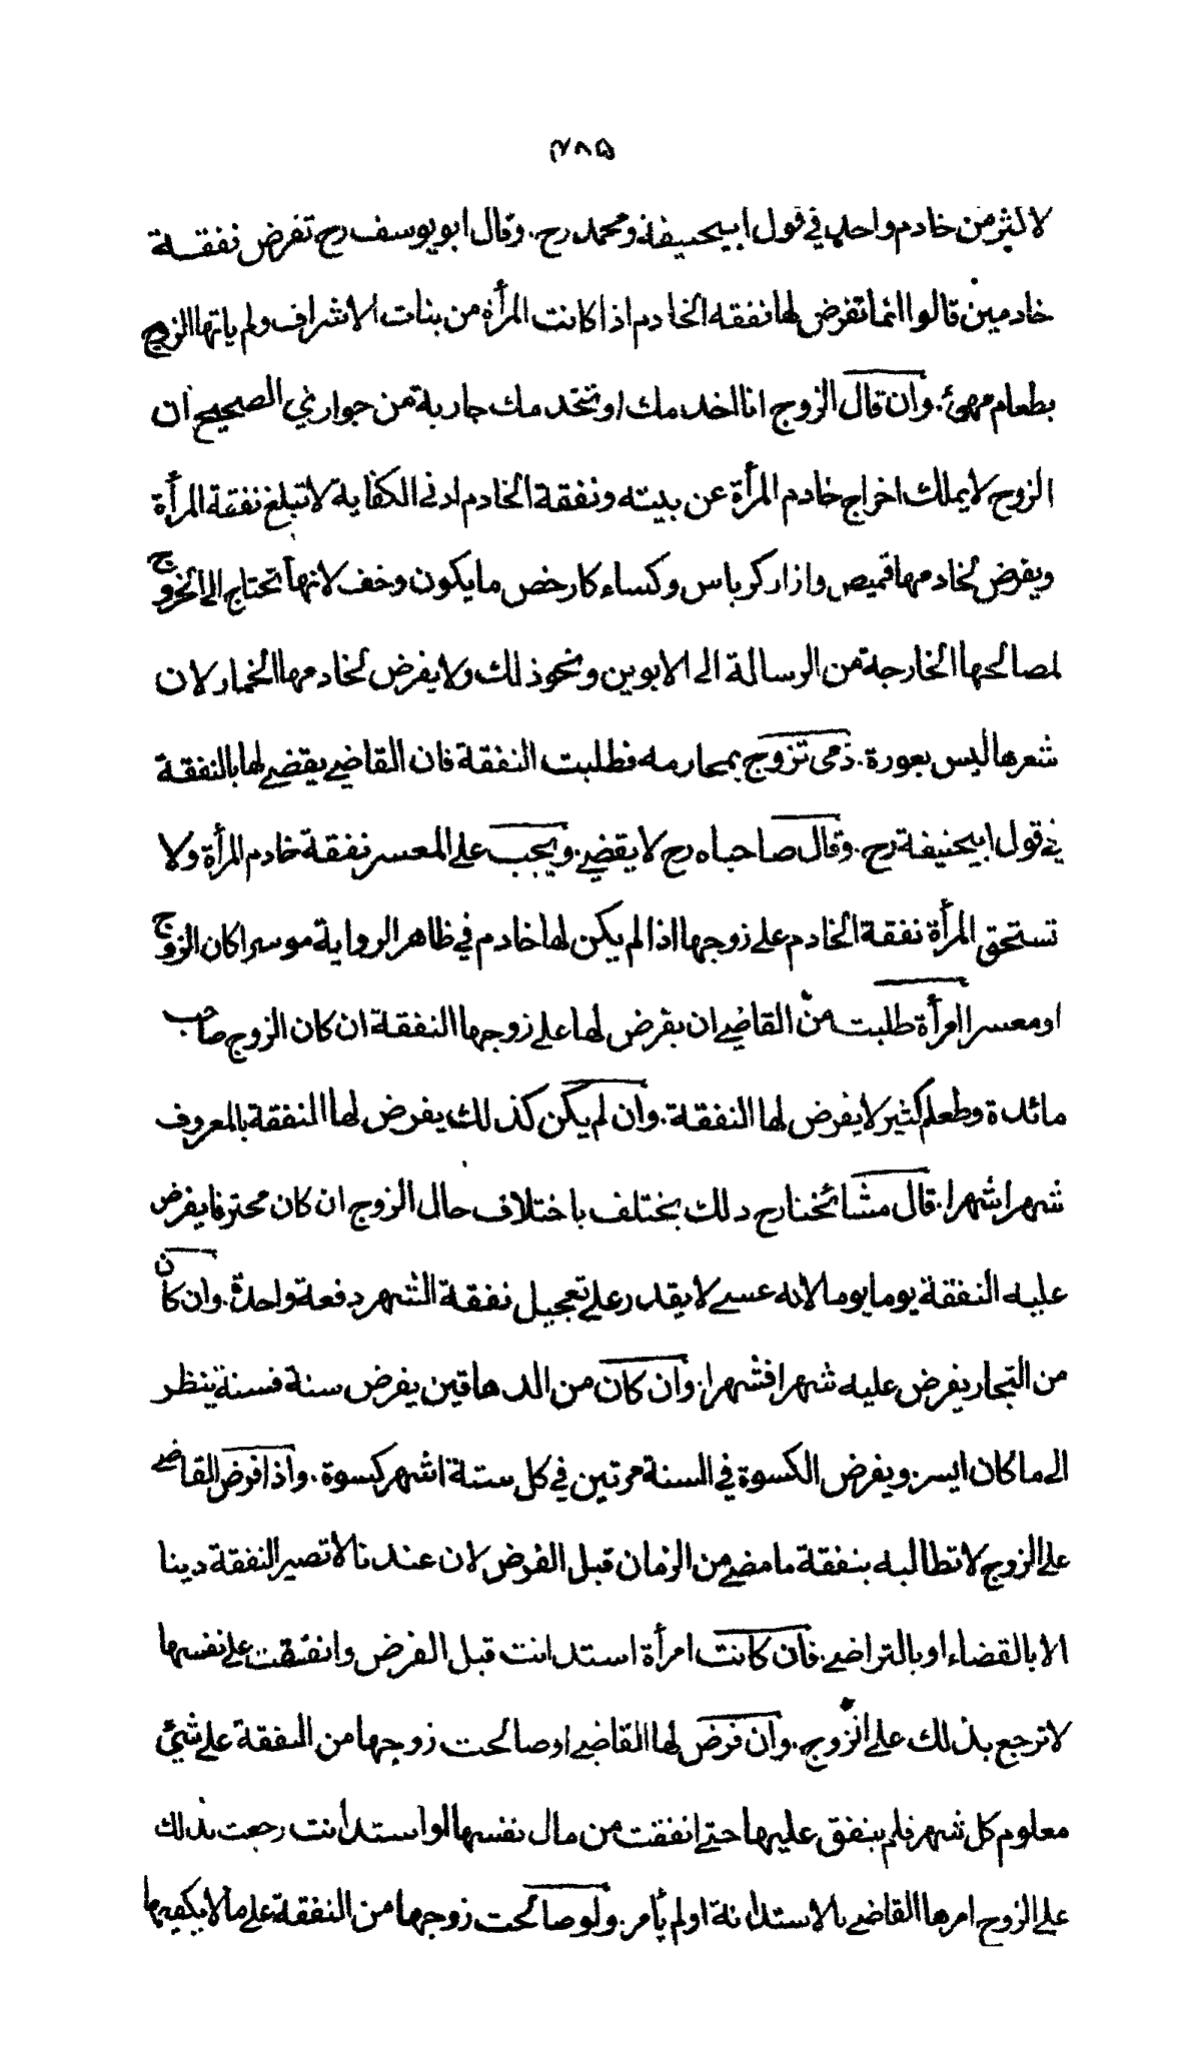 ٤٨٥
لاكثر من خادم واحد في قول ابيحنيفة ومحمد رح. وقال ابو يوسف رح تفرض نفقـة
خادمين قالوا انما تفرض لها نفقه الخادم اذا كانت المرأة من بنات الاشراف ولم ياتها الزوج
بطعام مهئ. وان قال الزوج انا اخدمك او تخدمك جارية من جواري الصحيح ان
الزوج لايملك اخراج خادم المرأة عن بيته ونفقة الخادم ادنى الكفاية لا تبلغ نفقة المرأة
ويفرض لخادمها قميص وازار كرباس وكساء كارخص ما يكون وخف لانها تحتاج الى الخروج
لمصالحها الخارجة من الرسالة الى الابوين ونحو ذلك ولا يفرض لخادمها الخمار لان
شعرها ليس بعورة. ذمى تزوج بمحارمه فطلبت النفقة فان القاضي يقضي لها بالنفقة
في قول ابيحنيفة رح. وقال صاحباه رح لا يقضي. ويجب على المعسر نفقة خادم المرأة ولا
تستحق المرأة نفقة الخادم على زوجها اذا لم يكن لها خادم في ظاهر الرواية موسرا كان الزوج
او معسرا امرأة طلبت من القاضي ان يفرض لها على زوجها النفقة ان كان الزوج صاحب
مائدة وطعام كثير لا يفرض لها النفقة. وان لم يكن كذلك يفرض لها النفقة بالمعروف
شهرا شهرا. قال مشائخنا رح ذلك يختلف باختلاف حال الزوج ان كان محترفا يفرض
عليه النفقة يوما يوما لانه عسى لا يقدر على تعجيل نفقة الشهر دفعة واحدة. وان كان
من التجار يفرض عليه شهرا فشهرا. وان كان من الدهاقين يفرض سنة فسنة ينظر
الى ما كان ايسر. ويفرض الكسوة في السنة مرتين في كل ستة اشهر كسوة. واذا فرض القاضي
على الزوج لا تطالبه بنفقة ما مضى من الزمان قبل الفرض لان عندنا لا تصير النفقة دينا
الا بالقضاء او بالتراضي. فان كانت امرأة استدانت قبل الفرض وانفقت على نفسها
لا ترجع بذلك على الزوج. وان فرض لها القاضي او صالحت زوجها من النفقة على شئ
معلوم كل شهر فلم ينفق عليها حتى انفقت من مال نفسها او استدانت رجعت بذلك
على الزوج امرها القاضي بالاستدانة او لم يأمر. ولو صالحت زوجها من النفقة على مالا يكفيها